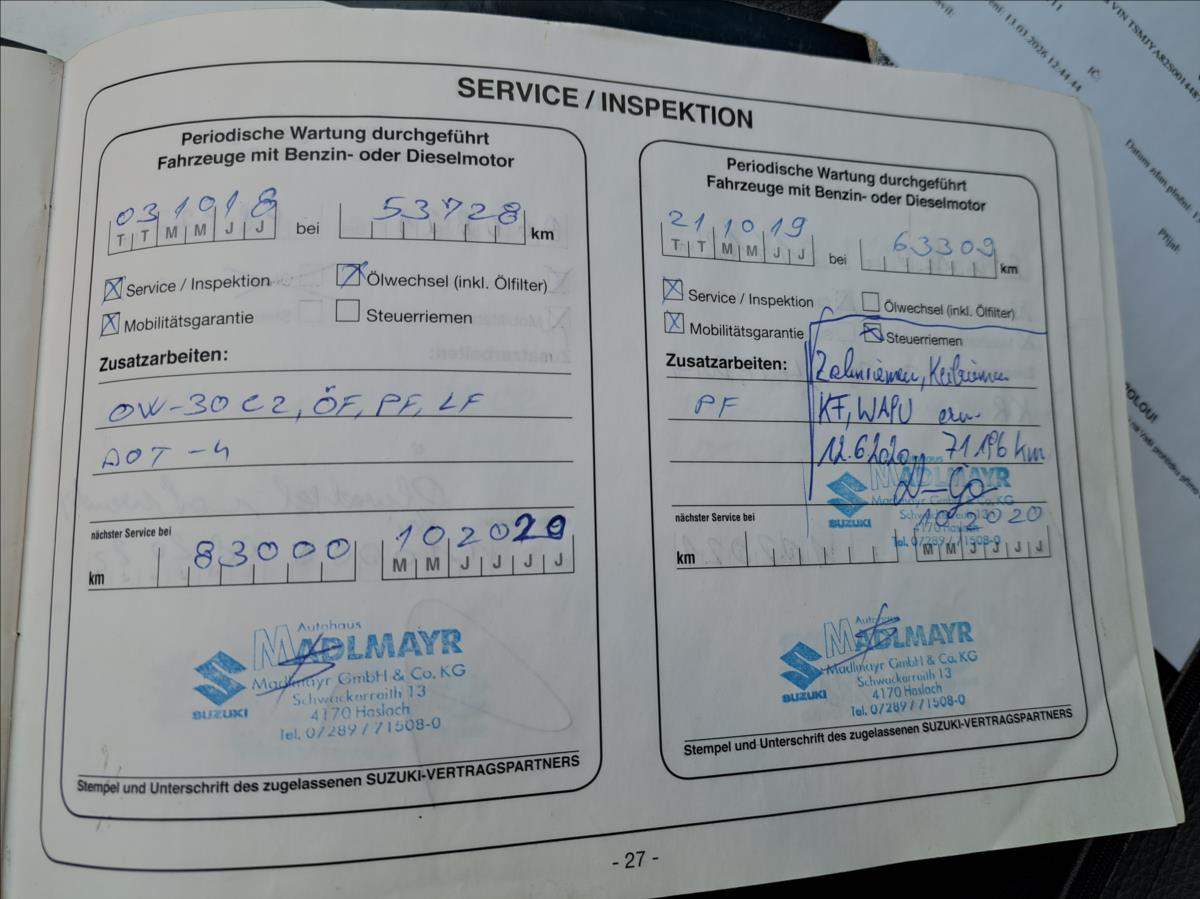 SERVICE / INSPEKTION
Periodische Wartung durchgeführt
Fahrzeuge mit Benzin- oder Dieselmotor
031018 bei 53728 km
T T M M J J
Service / Inspektion
Ölwechsel (inkl. Ölfilter)
Mobilitätsgarantie
Steuerriemen
Zusatzarbeiten:
0W-30 C2, ÖF, PF, LF
DOT-4
nächster Service bei
km 83000 102020
M M J J J J
Autohaus
MADLMAYR
Madlmayr GmbH & Co. KG
Schwackerraith 13
4170 Haslach
Tel. 07289 / 71508-0
SUZUKI
Stempel und Unterschrift des zugelassenen SUZUKI-VERTRAGSPARTNERS
Periodische Wartung durchgeführt
Fahrzeuge mit Benzin- oder Dieselmotor
211019 bei 63309 km
T T M M J J
Service / Inspektion
Ölwechsel (inkl. Ölfilter)
Mobilitätsgarantie
Steuerriemen
Zusatzarbeiten:
Zahnriemen, Keilriemen
PF
KF, WAPU ern.
12.6.2020 71196 km
Autohaus
MADLMAYR
Madlmayr GmbH & Co. KG
Schwackerraith 13
4170 Haslach
Tel. 07289 / 71508-0
SUZUKI
nächster Service bei
km 102020
M M J J J J
Autohaus
MADLMAYR
Madlmayr GmbH & Co. KG
Schwackerraith 13
4170 Haslach
Tel. 07289 / 71508-0
SUZUKI
Stempel und Unterschrift des zugelassenen SUZUKI-VERTRAGSPARTNERS
- 27 -
13.03.2026 12:44:44
IČ:
Přijal: